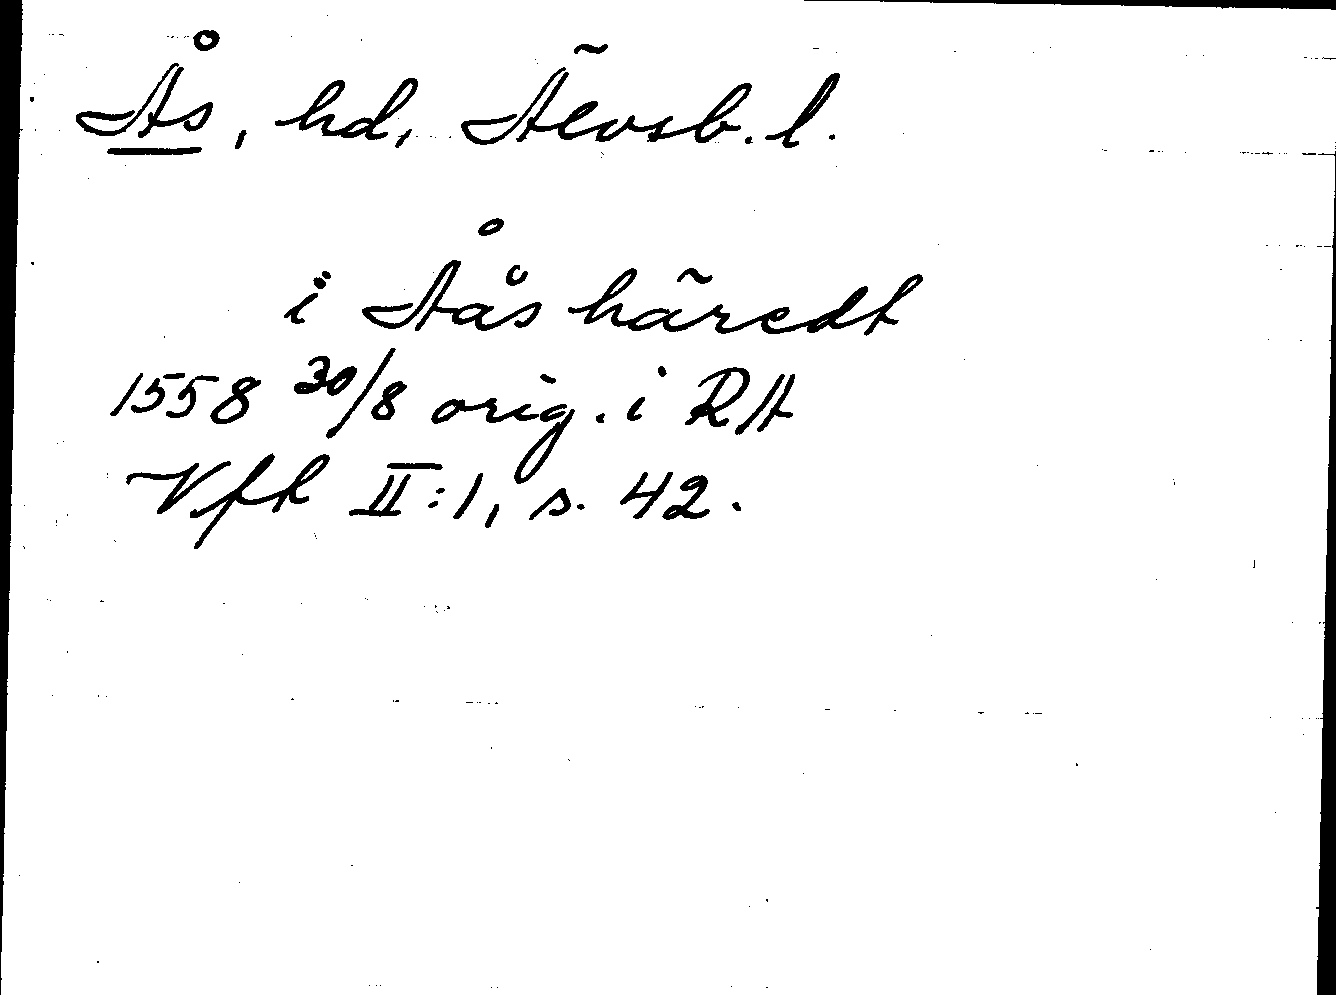 Ås, hd, Älvsb. l.
i Åås häredt
1558 30/8 orig. i RA
Vfr II:1, s. 42.